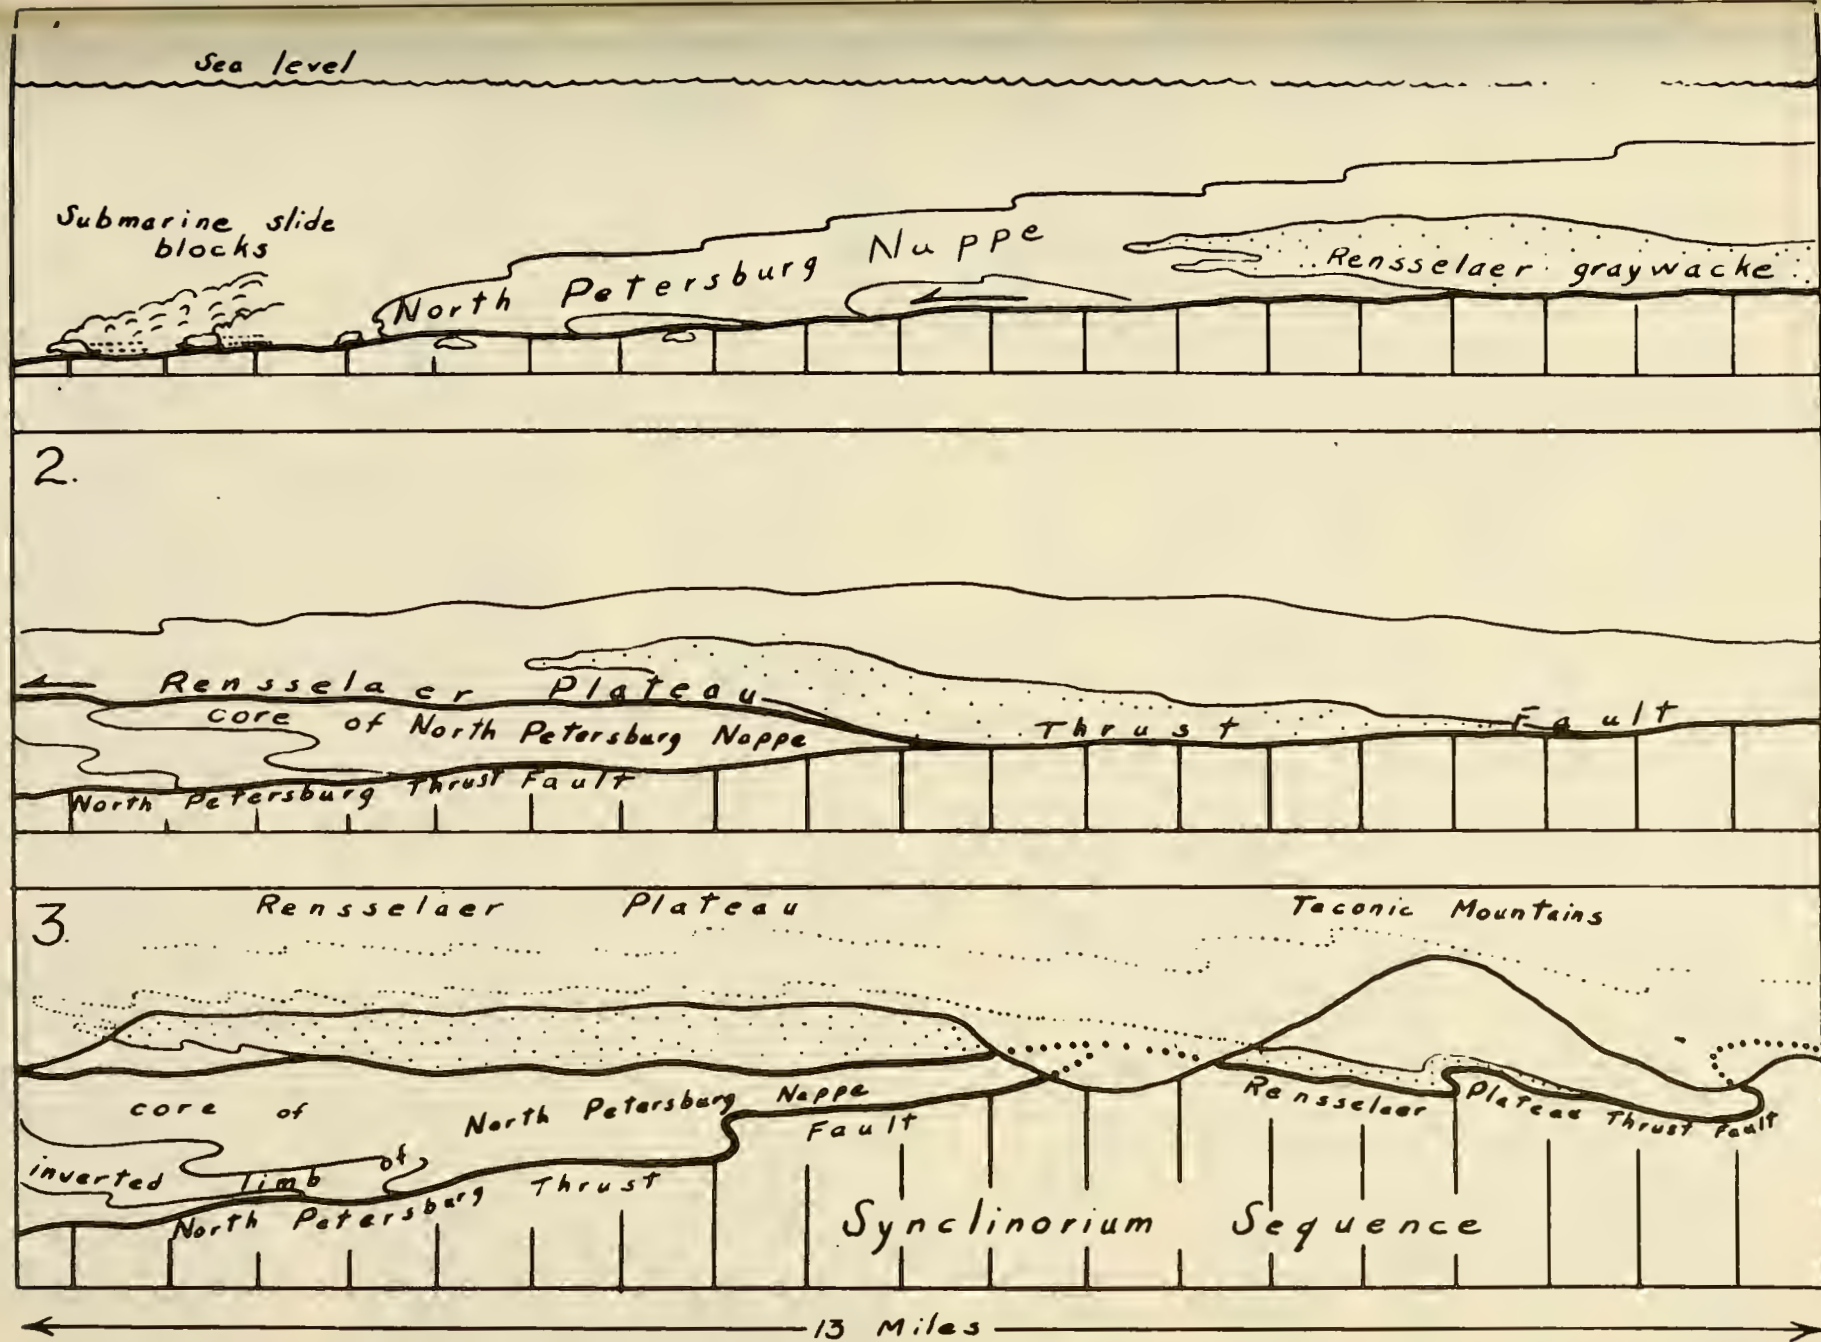 Sea level
Submarine slide
blocks
North Petersburg Nuppe
Rensselaer graywacke
2.
Rensselaer Plateau Thrust Fault
core of North Petersburg Nappe
North Petersburg Thrust Fault
3.
Rensselaer Plateau
Taconic Mountains
core of North Petersburg Nappe
Rensselaer Plateau Thrust Fault
inverted limb of
North Petersburg Thrust Fault
Synclinorium Sequence
13 Miles